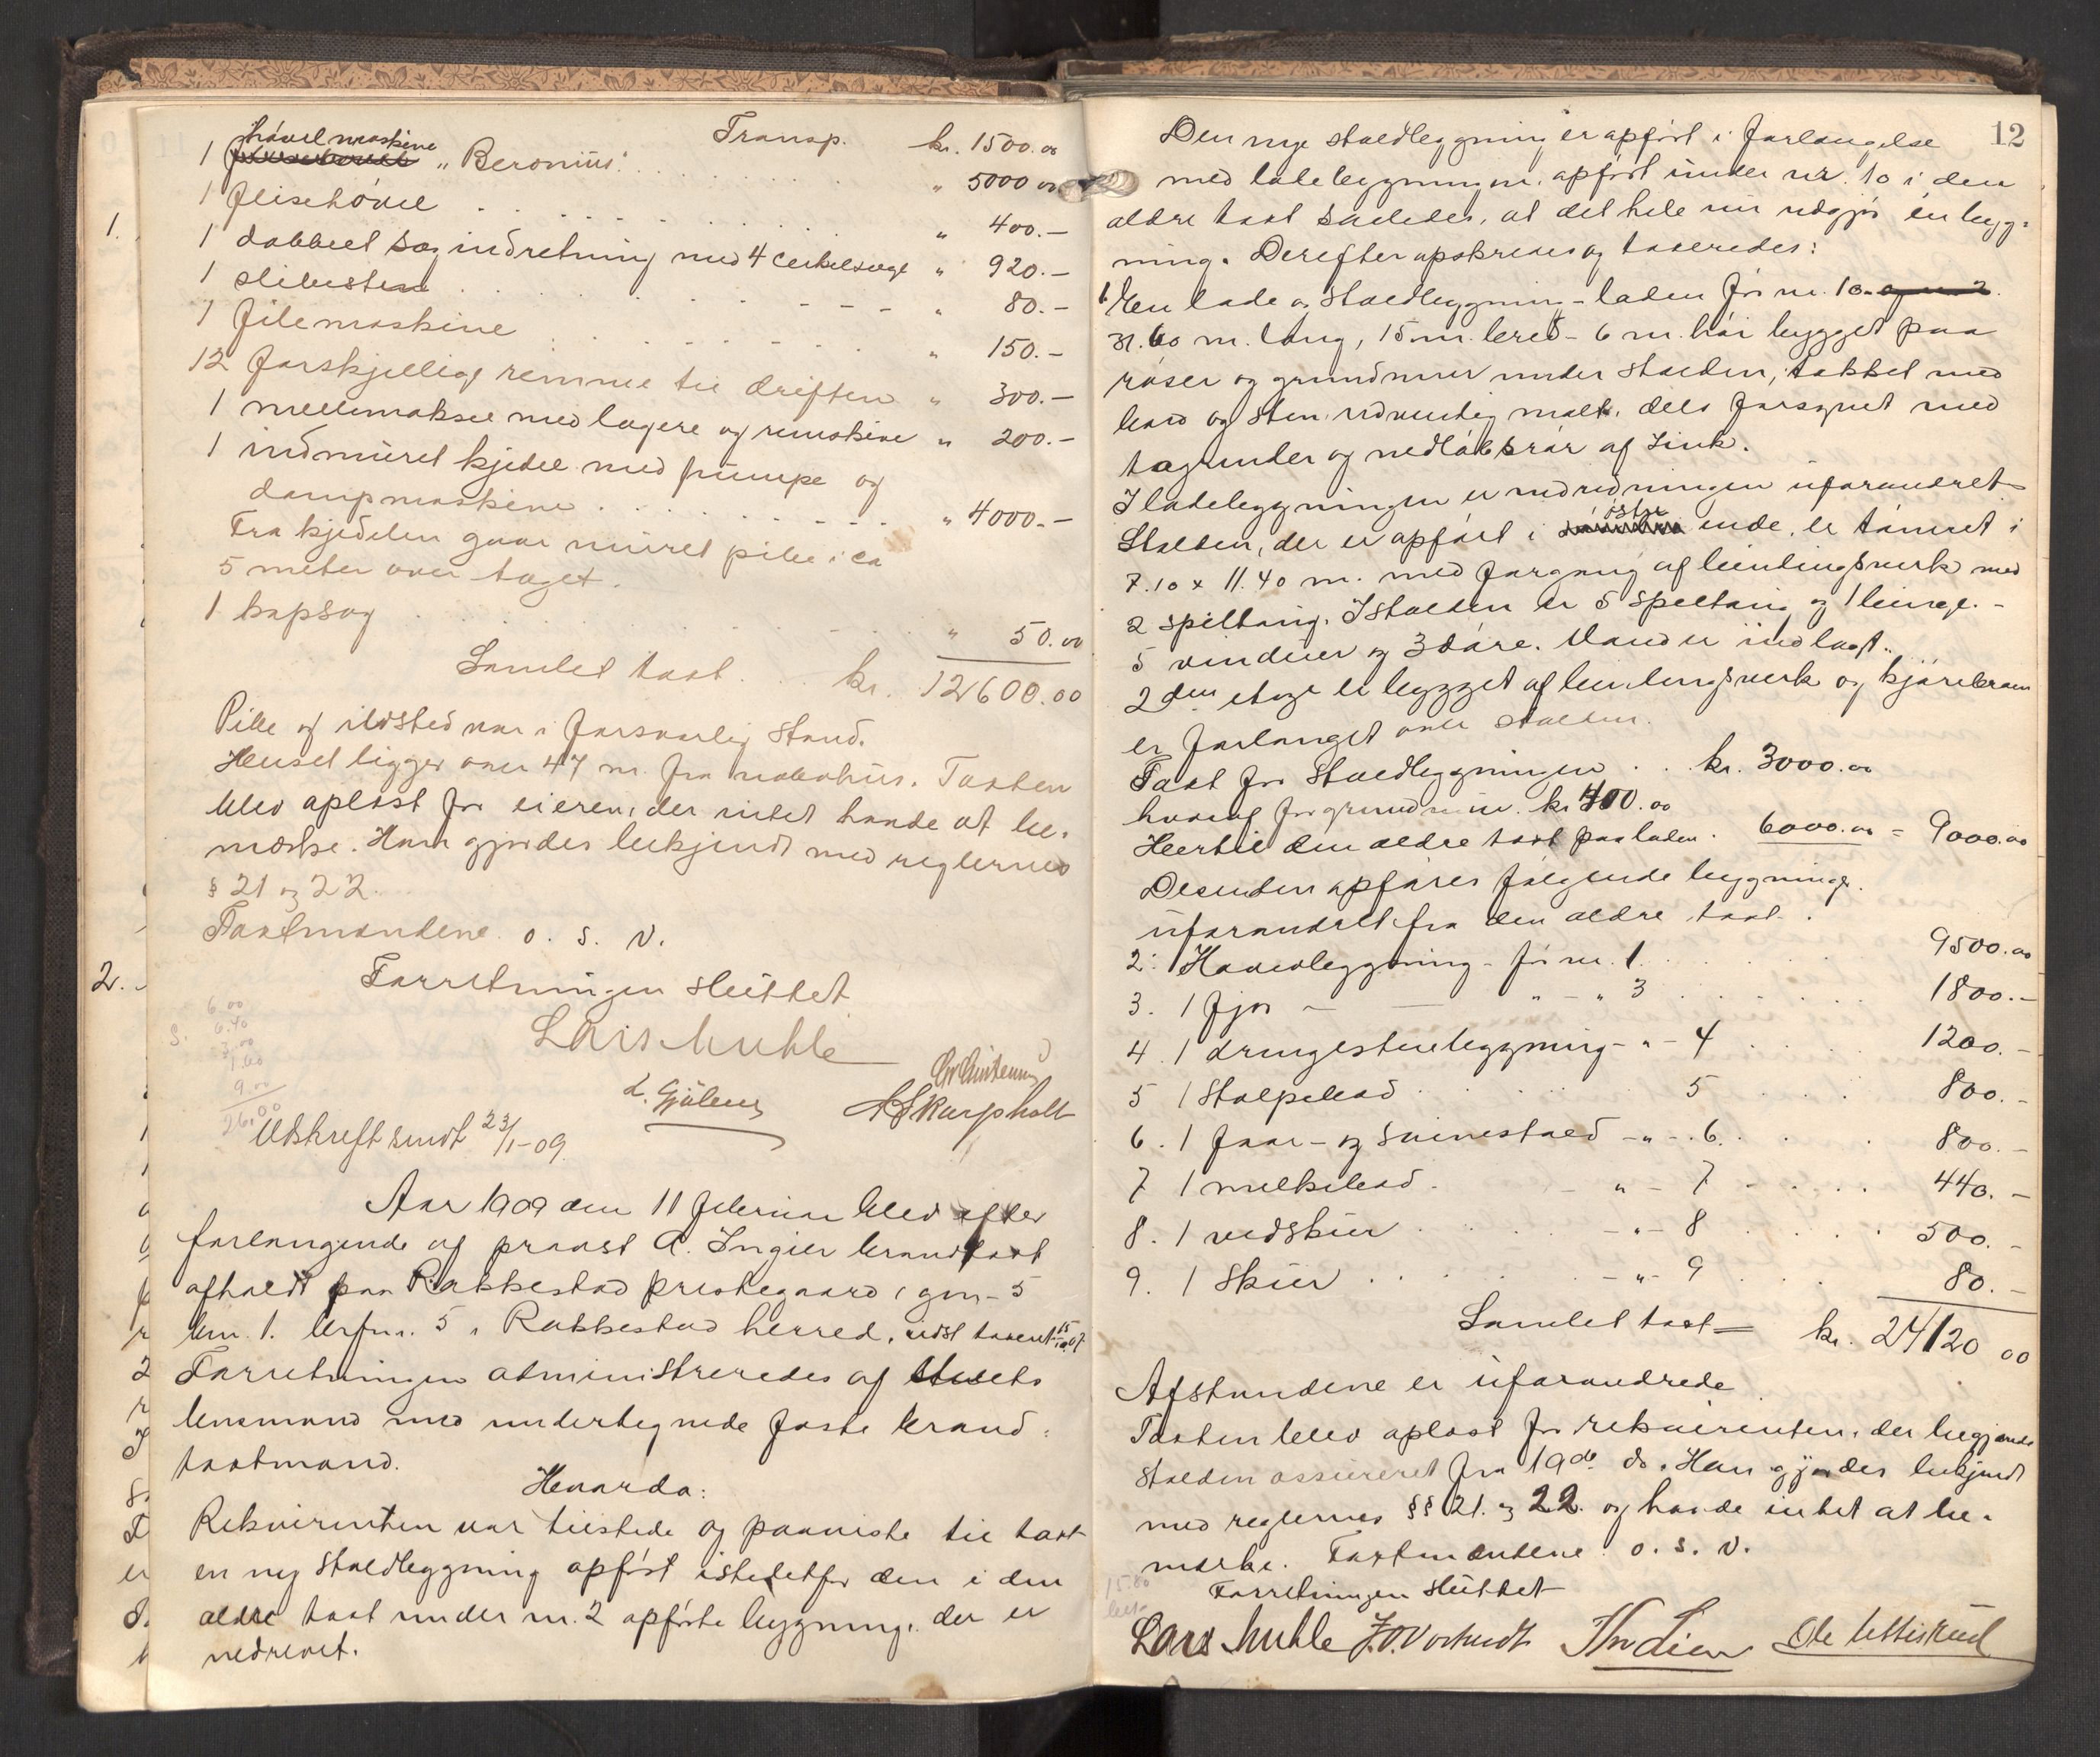 Transp. kr. 1500.00
hövelmaskine
1 „Beronius“ . . . . . „ 5000 00
1 flisehövel . . . . . „ 400.—
1 dobbel sagindretning med 4 cirkelsage „ 920.—
1 slibesten . . . . . „ 80.—
1 filemaskine . . . . . „ 150.—
12 forskjellige remme til driften „ 300.—
1 mellemaksel med lagere og remskive „ 200.—
1 indmuret kjedel med pumpe og
dampmaskine . . . . . „ 4000.—
Fra kjedelen gaar muret pibe i ca
5 meter over taget.
1 kapsag . . . . . „ 50.00
Samlet taxt . . . kr. 12600.00
Pibe og ildsted var i forsvarlig stand.
Huset ligger over 47 m. fra nabohus. Taxten
blev oplæst for eieren, der intet havde at be-
mærke. Han gjordes bekjendt med reglernes
§ 21 og 22.
Taxtmændene o. s. v.
Forretningen sluttet
Lars Muhle
L. Gjölens
A Skarpholt
6.00
6.40
3.00
1.60
9.00
26.00
Udskrift sendt 23/1-09
Aar 1909 den 11 februar blev efter
forlangende af provst A. Ingier brandtaxt
afholdt paa Rakkestad prestegaard, gm- 5
bn. 1. brfn. 5 i Rakkestad herred, sidst taxeret 15/10.07.
Forretningen administreredes af stedets
lensmand med undertegnede faste brand-
taxtmænd.
Hvorda:
Rekvirenten var tilstede og paaviste til taxt
en ny staldbygning opført istedetfor den i den
ældre taxt under nr. 2 opførte bygning, der er
nedrevet.
12
Den nye staldbygning er opført i forlængelse
med ladebygningen, opført under nr. 10 i den
ældre taxt saaledes, at det hele nu udgjör en byg-
ning. Derefter opskreves og taxeredes:
1 En lade og staldbygning - laden för nr. 10 og nr. 2
31.60 m. lang, 15 m. bred - 6 m. höi bygget paa
röser og grundmur under stalden, takket med
bord og sten. udvendig malt, dels forsynet med
tagrender og nedlöbsrör af zink.
I ladebygningen er indredningen uforandret
Stalden, der er opført i östre ende, er tömret i
7.10 x 11.40 m. med forgang af bindingsverk med
2 spiltaug. I stalden er 5 spiltaug og 1 binge. -
5 vinduer og 3 döre. Vand er indlagt.
2den etage er bygget af bindingsverk og kjörebroen
er forlænget over stalden.
Taxt for staldbygningen . . kr. 3000.00
hvoraf for grundmur. kr 400.00
Hertil den ældre taxt paa laden . 6000.00 = 9000.00
Desuden opføres følgende bygninger
uforandret fra den ældre taxt.
2. 1 Hovedbygning - för nr. 1 . . . . 9500.00
3. 1 fjøs — — „ - „ 3 . . . . 1800.—
4. 1 drengestuebygning - „ - 4 . . . . 1200.—
5 1 Stolpebod . . . . 5 . . . . 800.—
6. 1 faar- og svinestald - „ - . 6. . . . 800.—
7 1 melkebod . - „ - 7 . . . . 440.—
8. 1 vedskur . . . - „ - 8 . . . . 500.—
9. 1 skur . . . . . - „ - 9 . . . 80.—
Samlet taxt = kr. 24120 00
Afstandene er uforandrede
Taxten blev oplæst for rekvirenten, der begjærede
stalden assureret fra 19de ds. Han gjordes bekjendt
med reglernes §§ 21. og 22. og havde intet at be-
mærke. Taxtmændene o. s. v.
Forretningen sluttet
Lars Muhle Th Lien Ole Uttiskud